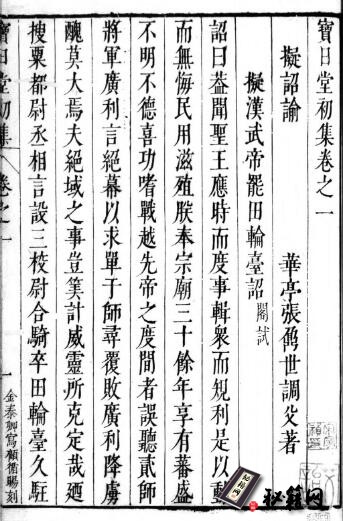 寶日堂初集卷之一
擬詔諭　華亭張鼐世調父著
擬漢武帝罷田輪臺詔 閣試
詔曰葢聞聖王應時而度事輯衆而規利是以動
而無悔民用滋殖朕奉宗廟三十餘年享有蕃盛
不明不德喜功嗜戰越先帝之度間者誤聽貳師
將軍廣利言絕幕以求單于師尋覆敗廣利降虜
醜莫大焉夫絕域之事豈筭計威靈所克定哉廼
搜粟都尉丞相言設三校尉合騎卒田輪臺久駐
寶日堂初集 卷之一
一
金泰卿寫顧循賜刻
秘籍网